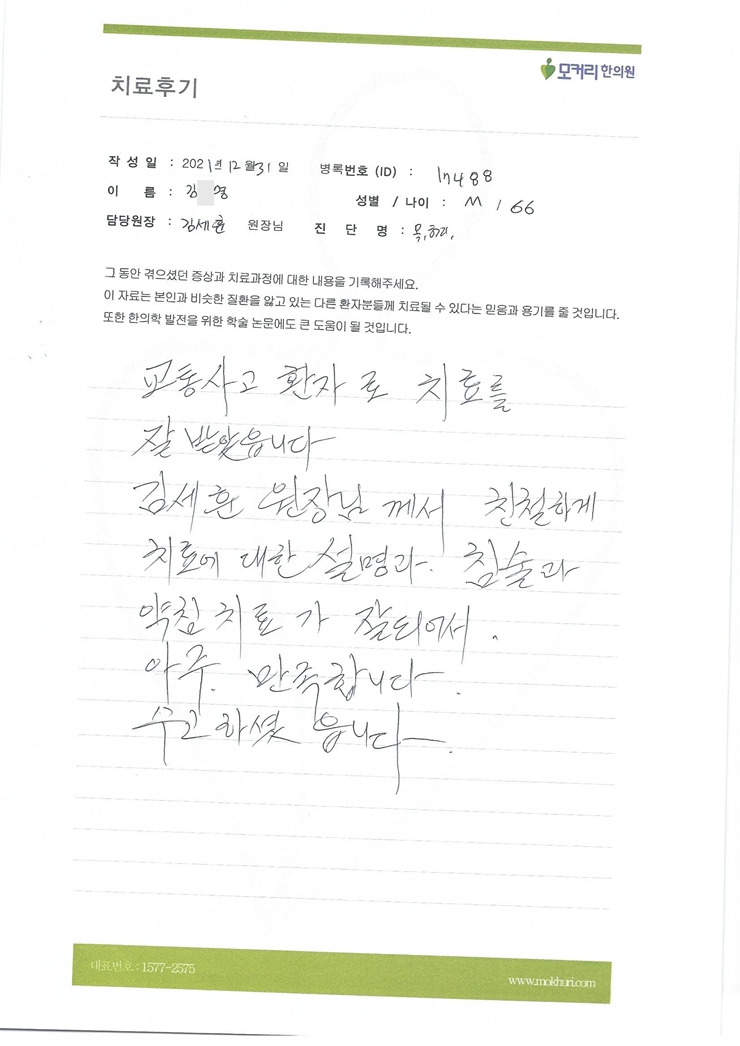 모커리한의원
치료후기
작 성 일 : 2021년 12월 31일 병록번호 (ID) : 17488
이 름 : 김 영 성별 / 나이 : M / 66
담당원장 : 김세훈 원장님 진 단 명 : 목, 허리,
그 동안 겪으셨던 증상과 치료과정에 대한 내용을 기록해주세요.
이 자료는 본인과 비슷한 질환을 앓고 있는 다른 환자분들께 치료될 수 있다는 믿음과 용기를 줄 것입니다.
또한 한의학 발전을 위한 학술 논문에도 큰 도움이 될 것입니다.
교통사고 환자로 치료를
잘 받았읍니다
김세훈 원장님 께서 친절하게
치료에 대한 설명과. 침술과
약침 치료가 잘되어서.
아주. 만족합니다.
수고하셨 읍니다.
대표번호 : 1577-2575
www.mokhuri.com